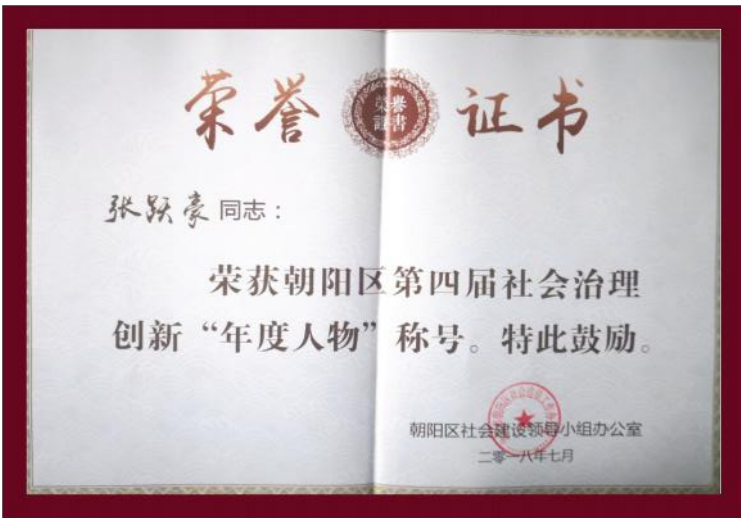 荣誉证书
荣誉
證書
张跃豪同志：
荣获朝阳区第四届社会治理
创新“年度人物”称号。特此鼓励。
朝阳区社会建设领导小组办公室
二零一八年七月